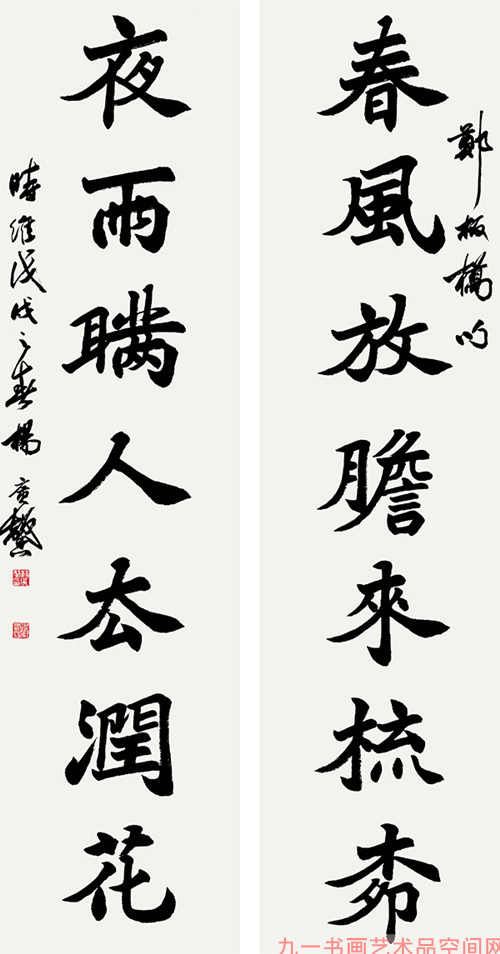 鄭板橋句
春風放膽來梳柳
夜雨瞞人去潤花
時維戊戌之春楊
九一书画艺术品空间网